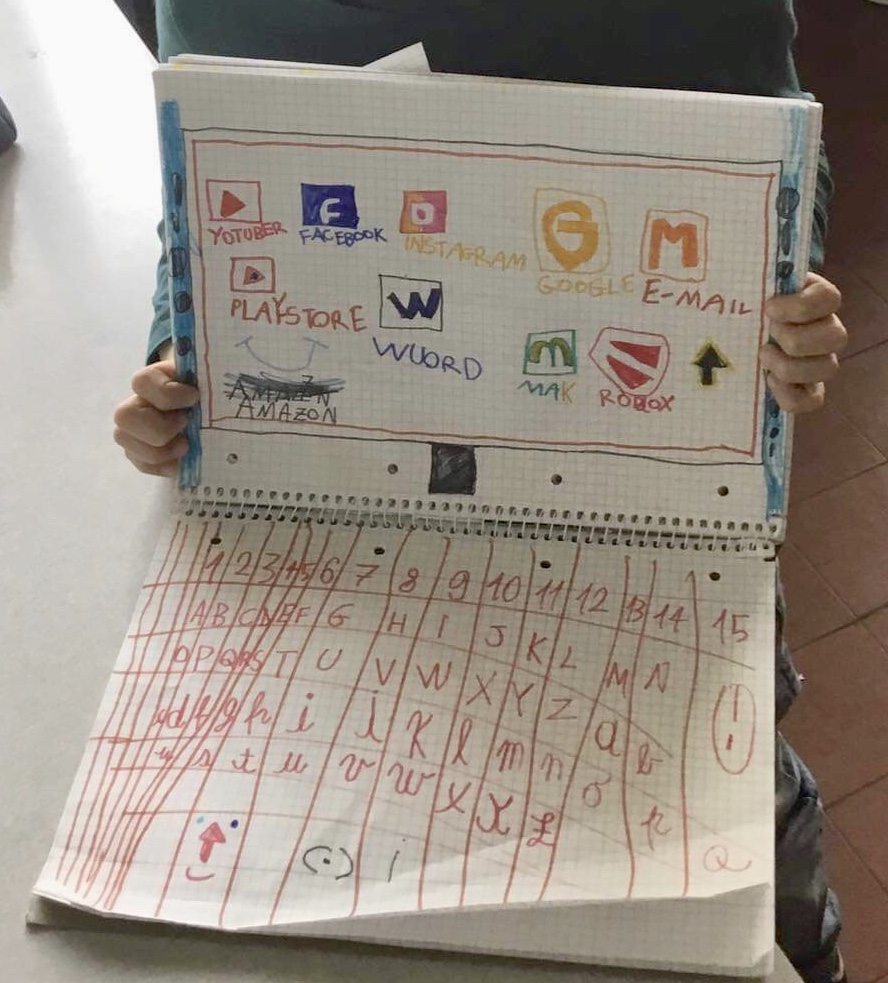 YOTUBER
F
FACEBOOK
INSTAGRAM
G
GOOGLE
M
E-MAIL
PLAYSTORE
W
WUORD
m
MAK
ROBOX
AMAZON
1 2 3 4 5 6 7 8 9 10 11 12 13 14 15
A B C D E F G H I J K L M N
O P Q R S T U V W X Y Z a b
d f g h i j k l m n o p
s t u v w x
Q
(·) i